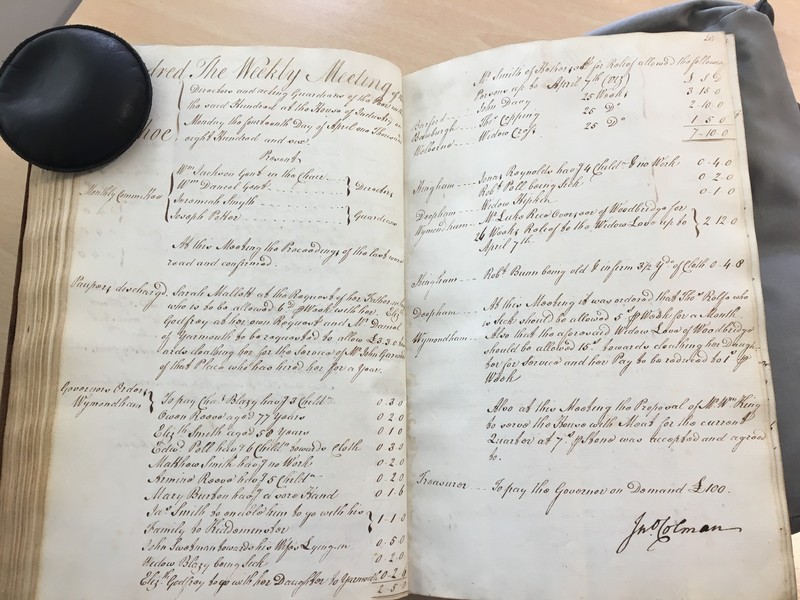 dred The Weekly Meeting of
Directors and acting Guardians of the Poor
the said Hundred at the House of Industry
hoe. Monday the fourteenth Day of April one Thousand
eight Hundred and
Present
Wm Jackson Gent in the Chair
Wm Daniel Gent
Directors
Monthly Committee
Jeremiah Smyth
Joseph
Guardians
At this Meeting the Proceedings of the last were
read and confirmed.
Paupers discharg'd. Sarah Mallett at the Request of her Father
who is to be allowed 6d ⅌ Week with her. Eliz
Godfroy at her own Request and Mr Daniel
of Yarmouth to be requested to allow £3.2.0
ards cloathing her for the Service of Mr John
of that Place who has hired her for a Year.
Governors Orders
Wymondham
To pay Chas Blazy havg 3 Childn 0.3.0
Owen Reeve aged 77 Years 0.2.0
Elizth Smith aged 50 Years 0.1.0
Edwd Poll havg 6 Childn towards Cloth 0.3.0
Matthew Smith havg no Work 0.2.0
Reeve havg 5 Childn 0.2.0
Mary Burton havg a sore Hand 0.1.6
Jas Smith to enable him to go with his
Family to Kidderminster 1.1.0
John towards his Wifes Lying in 0.5.0
Widow Blazy being Sick 0.2.0
Elizth Godfroy to go with her Daughter to Yarmouth 0.2.0
2.5.
Mr Smith of for Relief allowed the following
Persons up to April 7th (viz) £ s D
Barford John Davy 25 Weeks 3.15.0
Thos Copping 25 Do 2.10.0
Welborne Widow Cross 25 Do 1.5.0
7.10.0
Hingham Jonas Reynolds havg 4 Childn & no Work 0.4.0
Robt Poll being Sick 0.2.0
Deopham Widow 0.1.0
Wymondham Mr Luke Rice Overseer of Woodbridge for
26 Weeks Relief to the Widow Love up to
April 7th 2.12.0
Hingham Robt Bunn being old & infirm 3½ Yds of Cloth 0.4.8
Deopham At this Meeting it was ordered that Thos Rolfe who
is Sick should be allowed 5s ⅌ Week for a Month
Wymondham Also that the aforesaid Widow Love of Woodbridge
should be allowed 15s towards cloathing her Daugh
ter for Service and her Pay to be reduced to 1s ⅌
Week
Also at this Meeting the Proposal of Mr Wm King
to serve the House with Meat for the current
Quarter at 7s ⅌ Stone was accepted and agreed
to.
Treasurer To pay the Governor on Demand £100.
Jno Colman